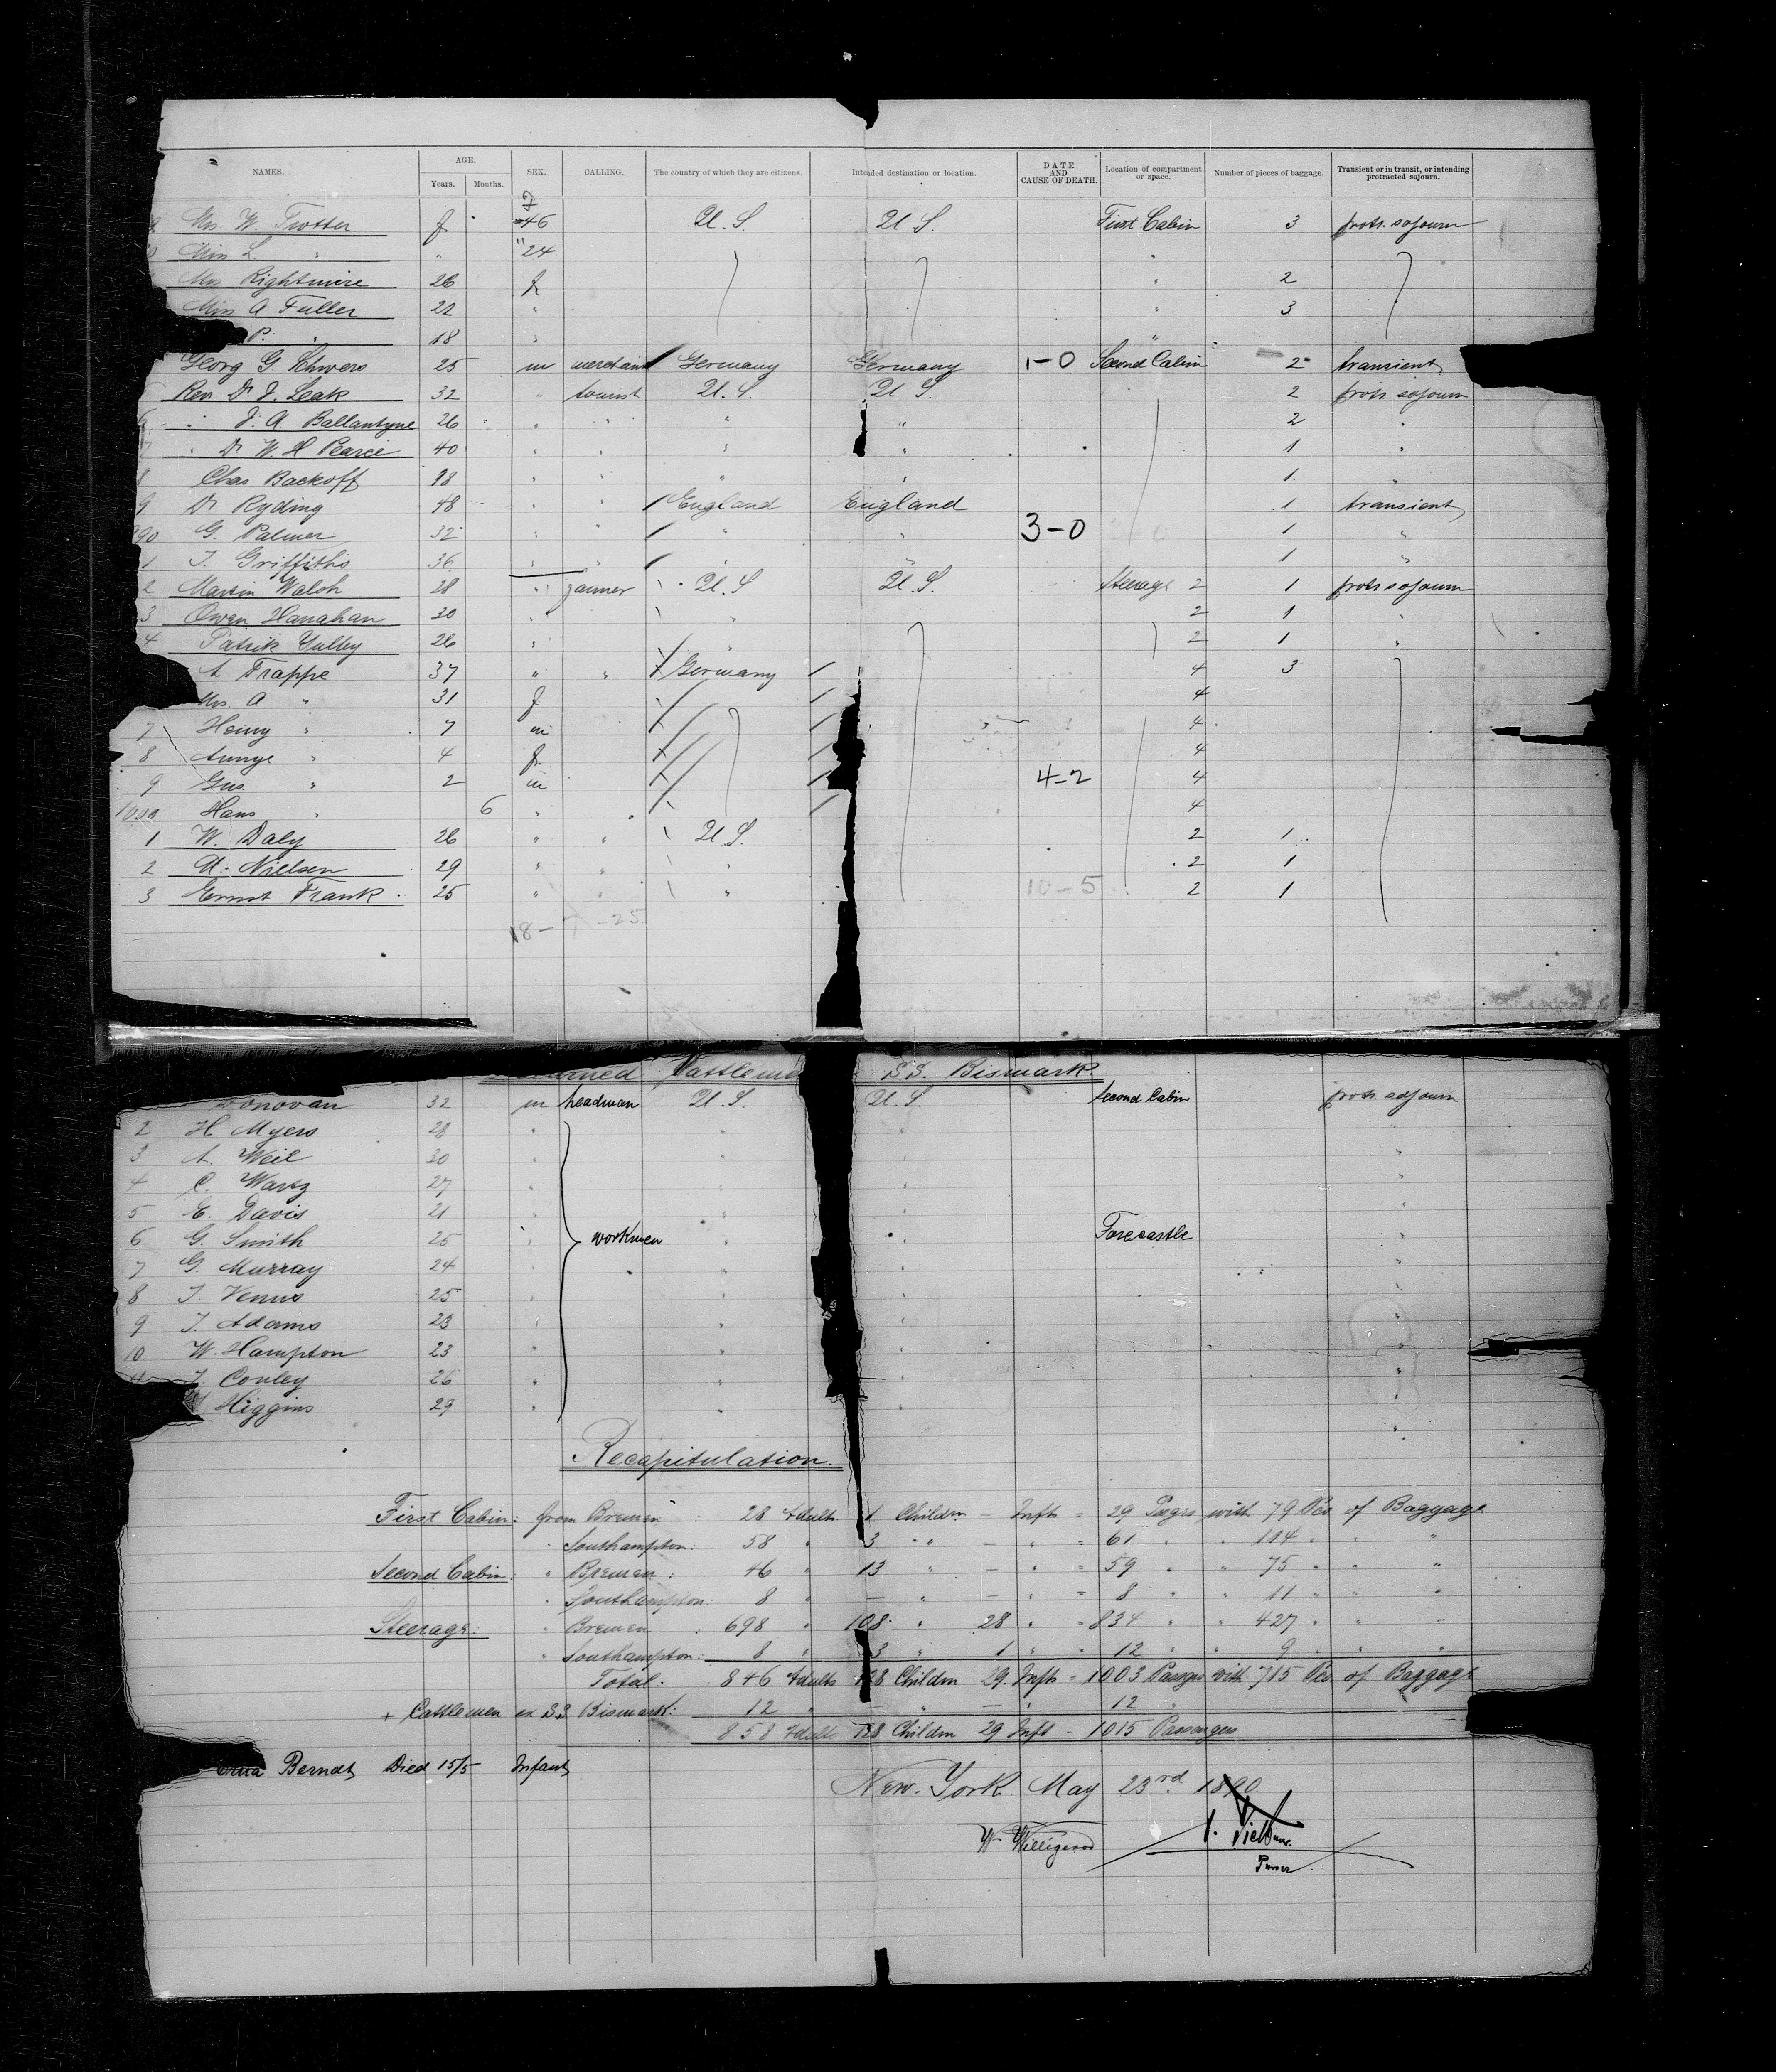 NAMES. AGE. Years. Months. SEX. CALLING. The country of which they are citizens. Intended destination or location. DATE AND CAUSE OF DEATH. Location of compartment or space. Number of pieces of baggage. Transient or in transit, or intending protracted sojourn.
Mrs W. Trotter f 46 U. S. U S. First Cabin 3 protr. sojourn
Miss L " " " 24
Mrs Rightmire 26 f " 2
Miss A Fuller 22 " " 3
P. " 18 " "
Georg G Schwers 25 m merchant Germany Germany 1-0 Second Cabin 2 transient
Rev Dr J. Leak 32 " tourist U. S. U S. 2 protr sojourn
6 " J. A. Ballantyne 26 " " " " 2 "
7 " Dr W. H Pearce 40 " " " " 1 "
8 Chas Backoff 38 " " " " 1 "
9 Dr Ryding 48 " " England England 1 transient
990 G. Palmer 32 " " " " 3-0 1 "
1 J. Griffiths 36 " " " " 1 "
2 Martin Walsh 28 " farmer U. S U. S. Steerage 2 1 protr sojourn
3 Owen Hanahan 30 " " 2 1 "
4 Patrik Gulley 26 " " 2 1 "
A Frappe 37 " " Germany 4 3
Mrs A " 31 f 4
7 Heiny " 7 m 4
8 Annye " 4 f 4
9 Gus " 2 m 4-2 4
1000 Hans " 6 " 4
1 W. Daly 26 " " U. S. 2 1
2 A. Nielsen 29 " " " 2 1
3 Ernst Frank 25 " " " 10-5 2 1
18- 7 -25
Cattlemen S.S. Bismark.
Donovan 32 m headman U. S. U. S. Second Cabin protr. sojourn
2 H Myers 28 " " " "
3 A. Weil 30 " " " "
4 C. Wartz 27 " " " "
5 E. Davis 21 " " " "
6 G. Smith 25 " workmen " " Forecastle "
7 G. Murray 24 " " " "
8 J. Venus 25 " " " "
9 J. Adams 23 " " " "
10 W. Hampton 23 " " " "
11 J. Conley 26 " " " "
Higgins 29 " " " "
Recapitulation.
First Cabin: from Bremen : 28 Adults 1 Childrn - Infts = 29 Psgrs with 79 Pcs of Baggage
" Southampton: 58 " 3 " - " = 61 " " 114 " " "
Second Cabin: " Bremen : 46 " 13 " - " = 59 " " 75 " " "
" Southampton: 8 " - " - " = 8 " " 11 " " "
Steerage: " Bremen : 698 " 108 " 28 " = 834 " " 427 " " "
" Southampton: 8 " 3 " 1 " = 12 " " 9 " " "
Total: 846 Adults 128 Childrn 29 Infts = 1003 Passgrs with 715 Pcs of Baggage
+ Cattlemen ex S.S. Bismark: 12 " - " - " 12 "
858 Adults 128 Childrn 29 Inft - 1015 Passengers
Berndt Died 15/5 Infant
New-York May 23rd 1890
W. Willigerod
Purser